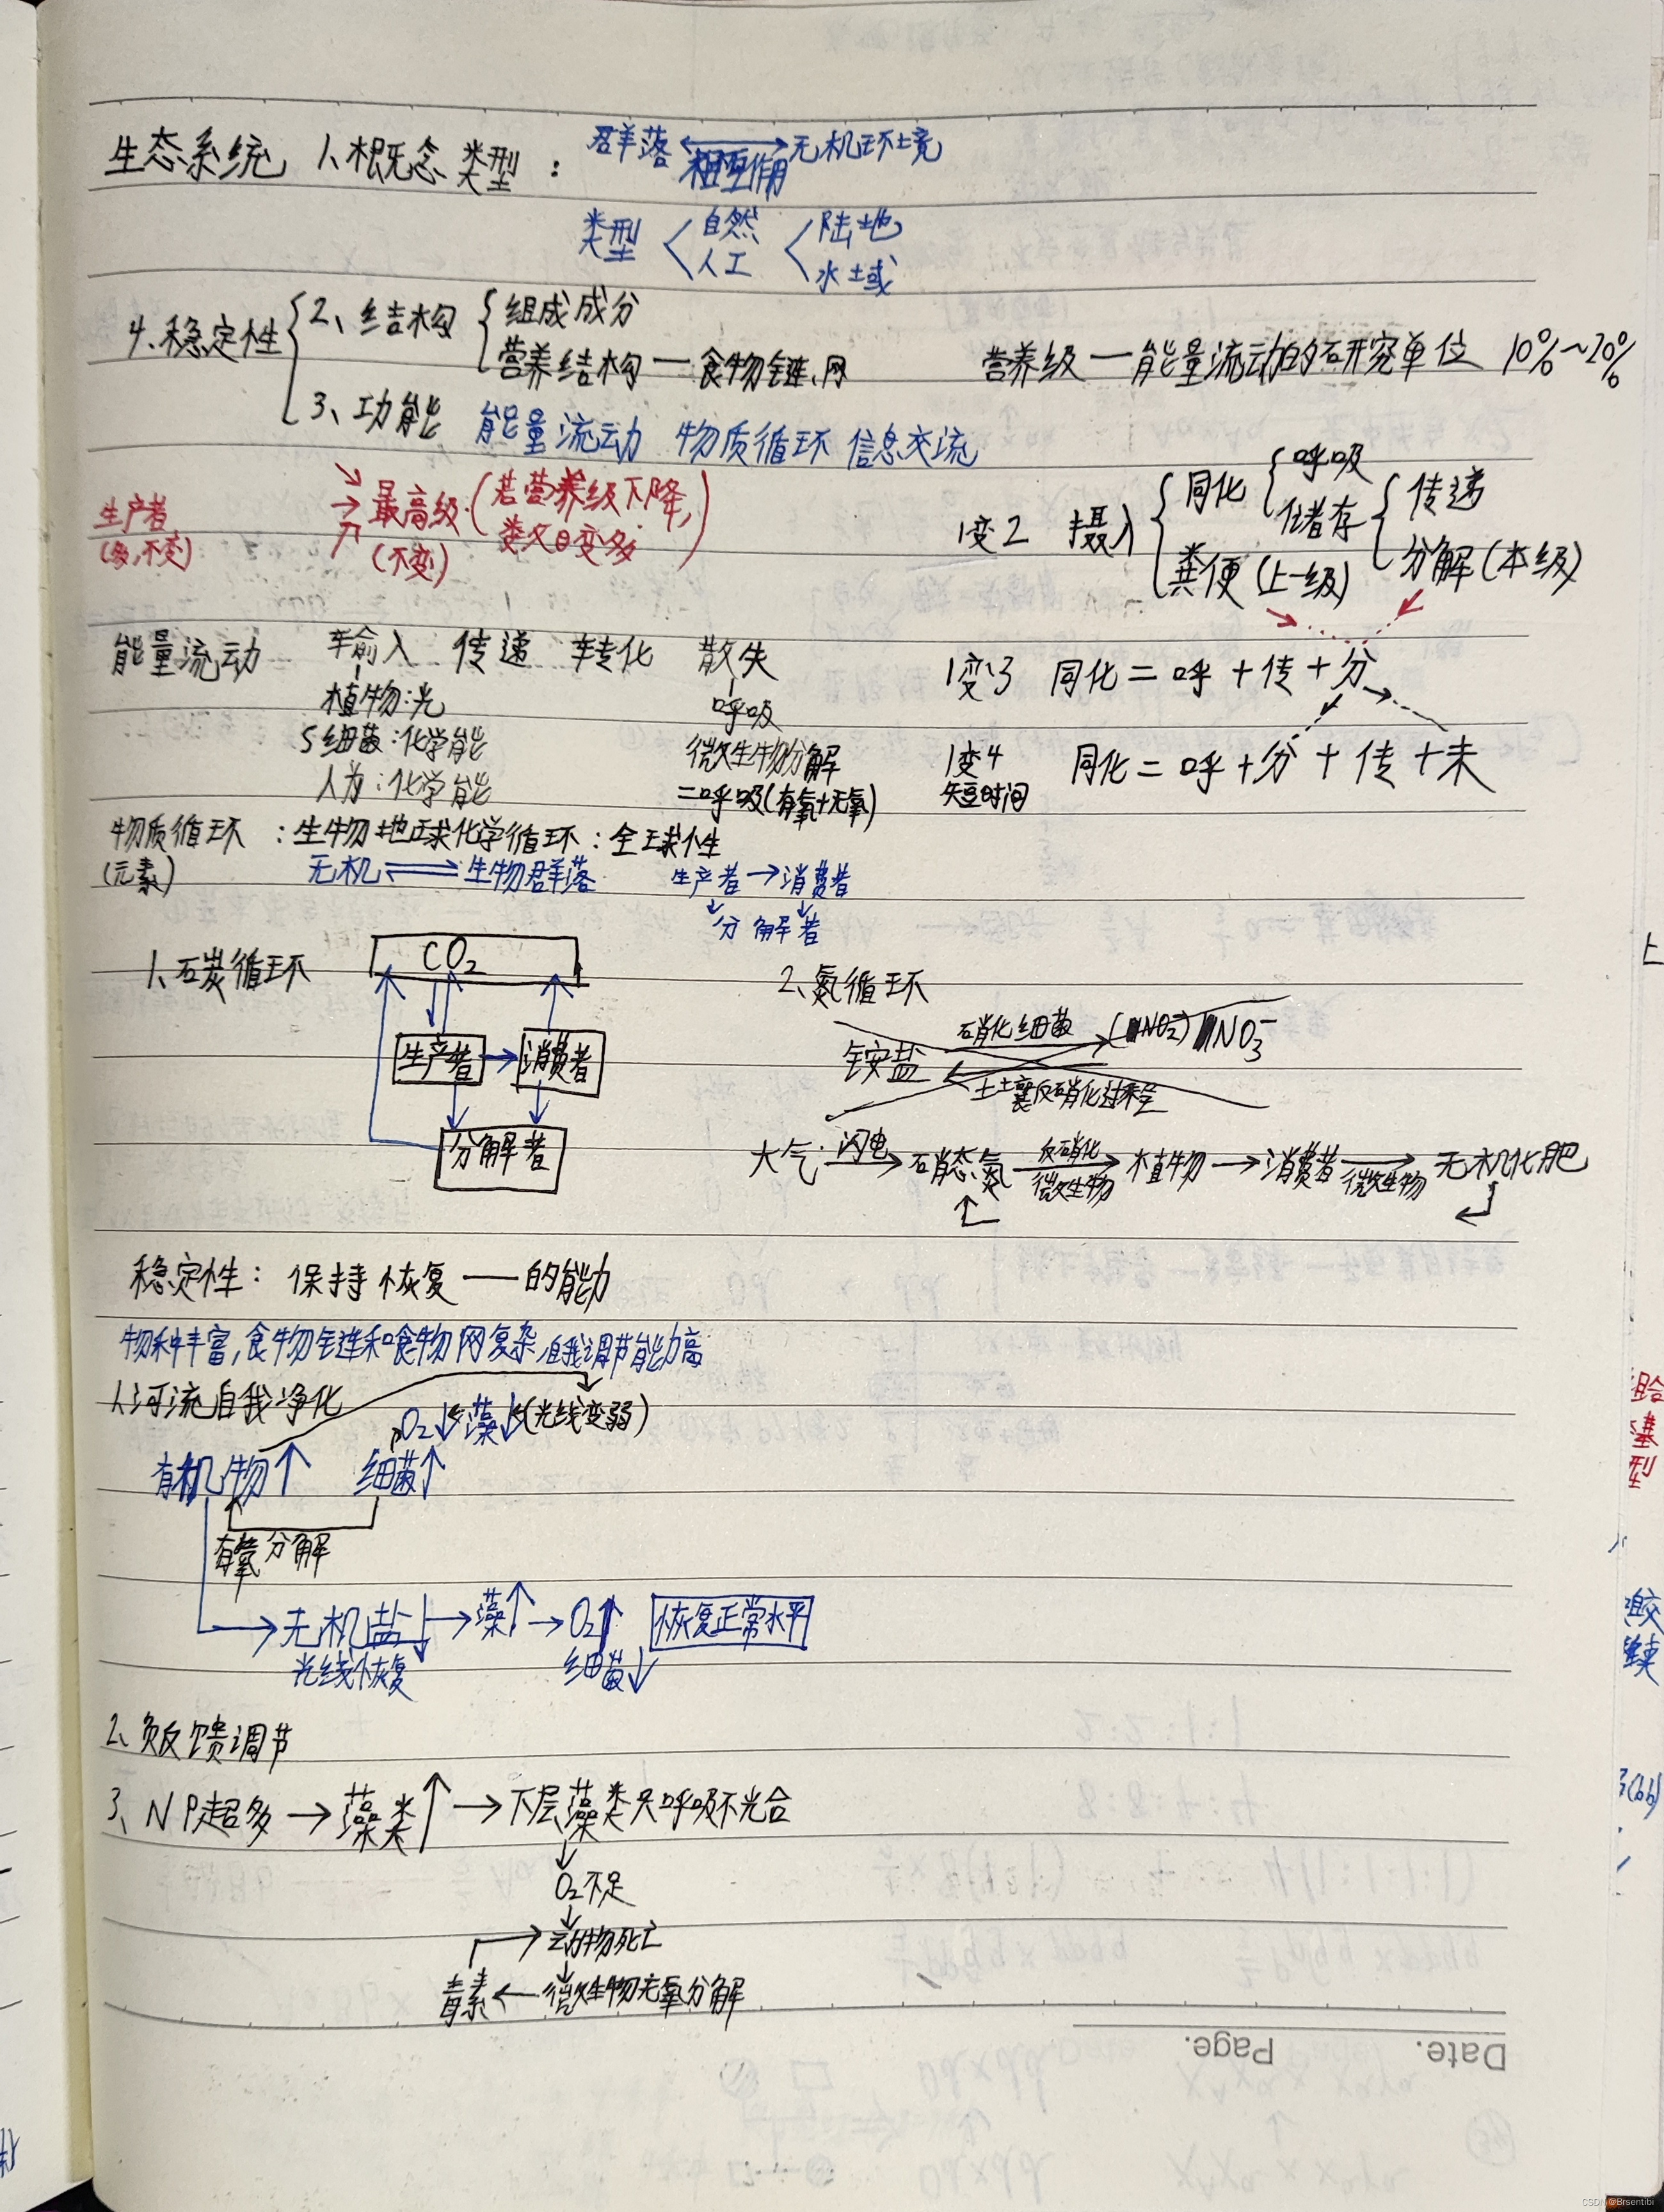 生态系统 1、概念 类型： 群落 ⟷ 无机环境
相互作用
类型 自然 陆地
人工 水域
4、稳定性 2、结构 组成成分
营养结构 — 食物链、网 营养级 — 能量流动的研究单位 10%~20%
3、功能 能量流动 物质循环 信息交流
生产者 → 最高级 (若营养级下降,
(多,不变) (不变) 数目变多)
1变2 摄入 同化 呼吸
储存 传递
粪便(上一级) 分解(本级)
能量流动 输入 传递 转化 散失
植物:光 呼吸
细菌:化学能 微生物分解
人为:化学能 =呼吸(有氧+无氧)
1变3 同化=呼+传+分
1变4 同化=呼+分+传+未
短时间
物质循环 :生物地球化学循环:全球性
(元素) 无机 ⇌ 生物群落 生产者→消费者
分解者
1、碳循环 CO₂
生产者 → 消费者
分解者
2、氮循环
铵盐 硝化细菌 (NO₂⁻) NO₃⁻
土壤反硝化过程
大气 闪电→ 硝态氮 反硝化 微生物→ 植物 → 消费者 微生物→ 无机化肥
稳定性: 保持恢复——的能力
物种丰富,食物链和食物网复杂,自我调节能力高
1、河流自我净化
O₂↓ ← 藻↓ ← (光线变弱)
有机物↑ 细菌↑
有氧分解
→ 无机盐↓ → 藻↑ → O₂↑ 恢复正常水平
光线恢复 细菌↓
2、负反馈调节
3、N P超多 → 藻类↑ → 下层藻类只呼吸不光合
↓
O₂不足
↓
→ 动物死亡
↓
毒素 ← 微生物无氧分解
Date. Page.
CSDN @Brsentibi